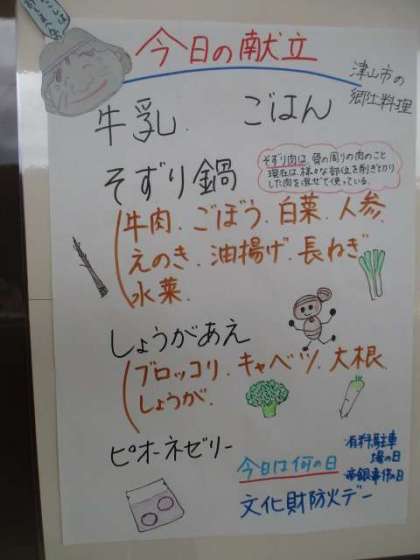 今日の献立
津山市の
郷土料理
牛乳. ごはん
そずり鍋
そずり肉は、骨の周りの肉のこと
現在は、様々な部位を削ぎとりり
した肉を混ぜて使っている。
牛肉.ごぼう.白菜.人参.
えのき.油揚げ.長ねぎ
水菜.
しょうがあえ
ブロッコリ.キャベツ.大根.
しょうが.
ピオーネゼリー
今日は何の日
・有料駐車
場の日
・帝銀事件の日
文化財防火デー